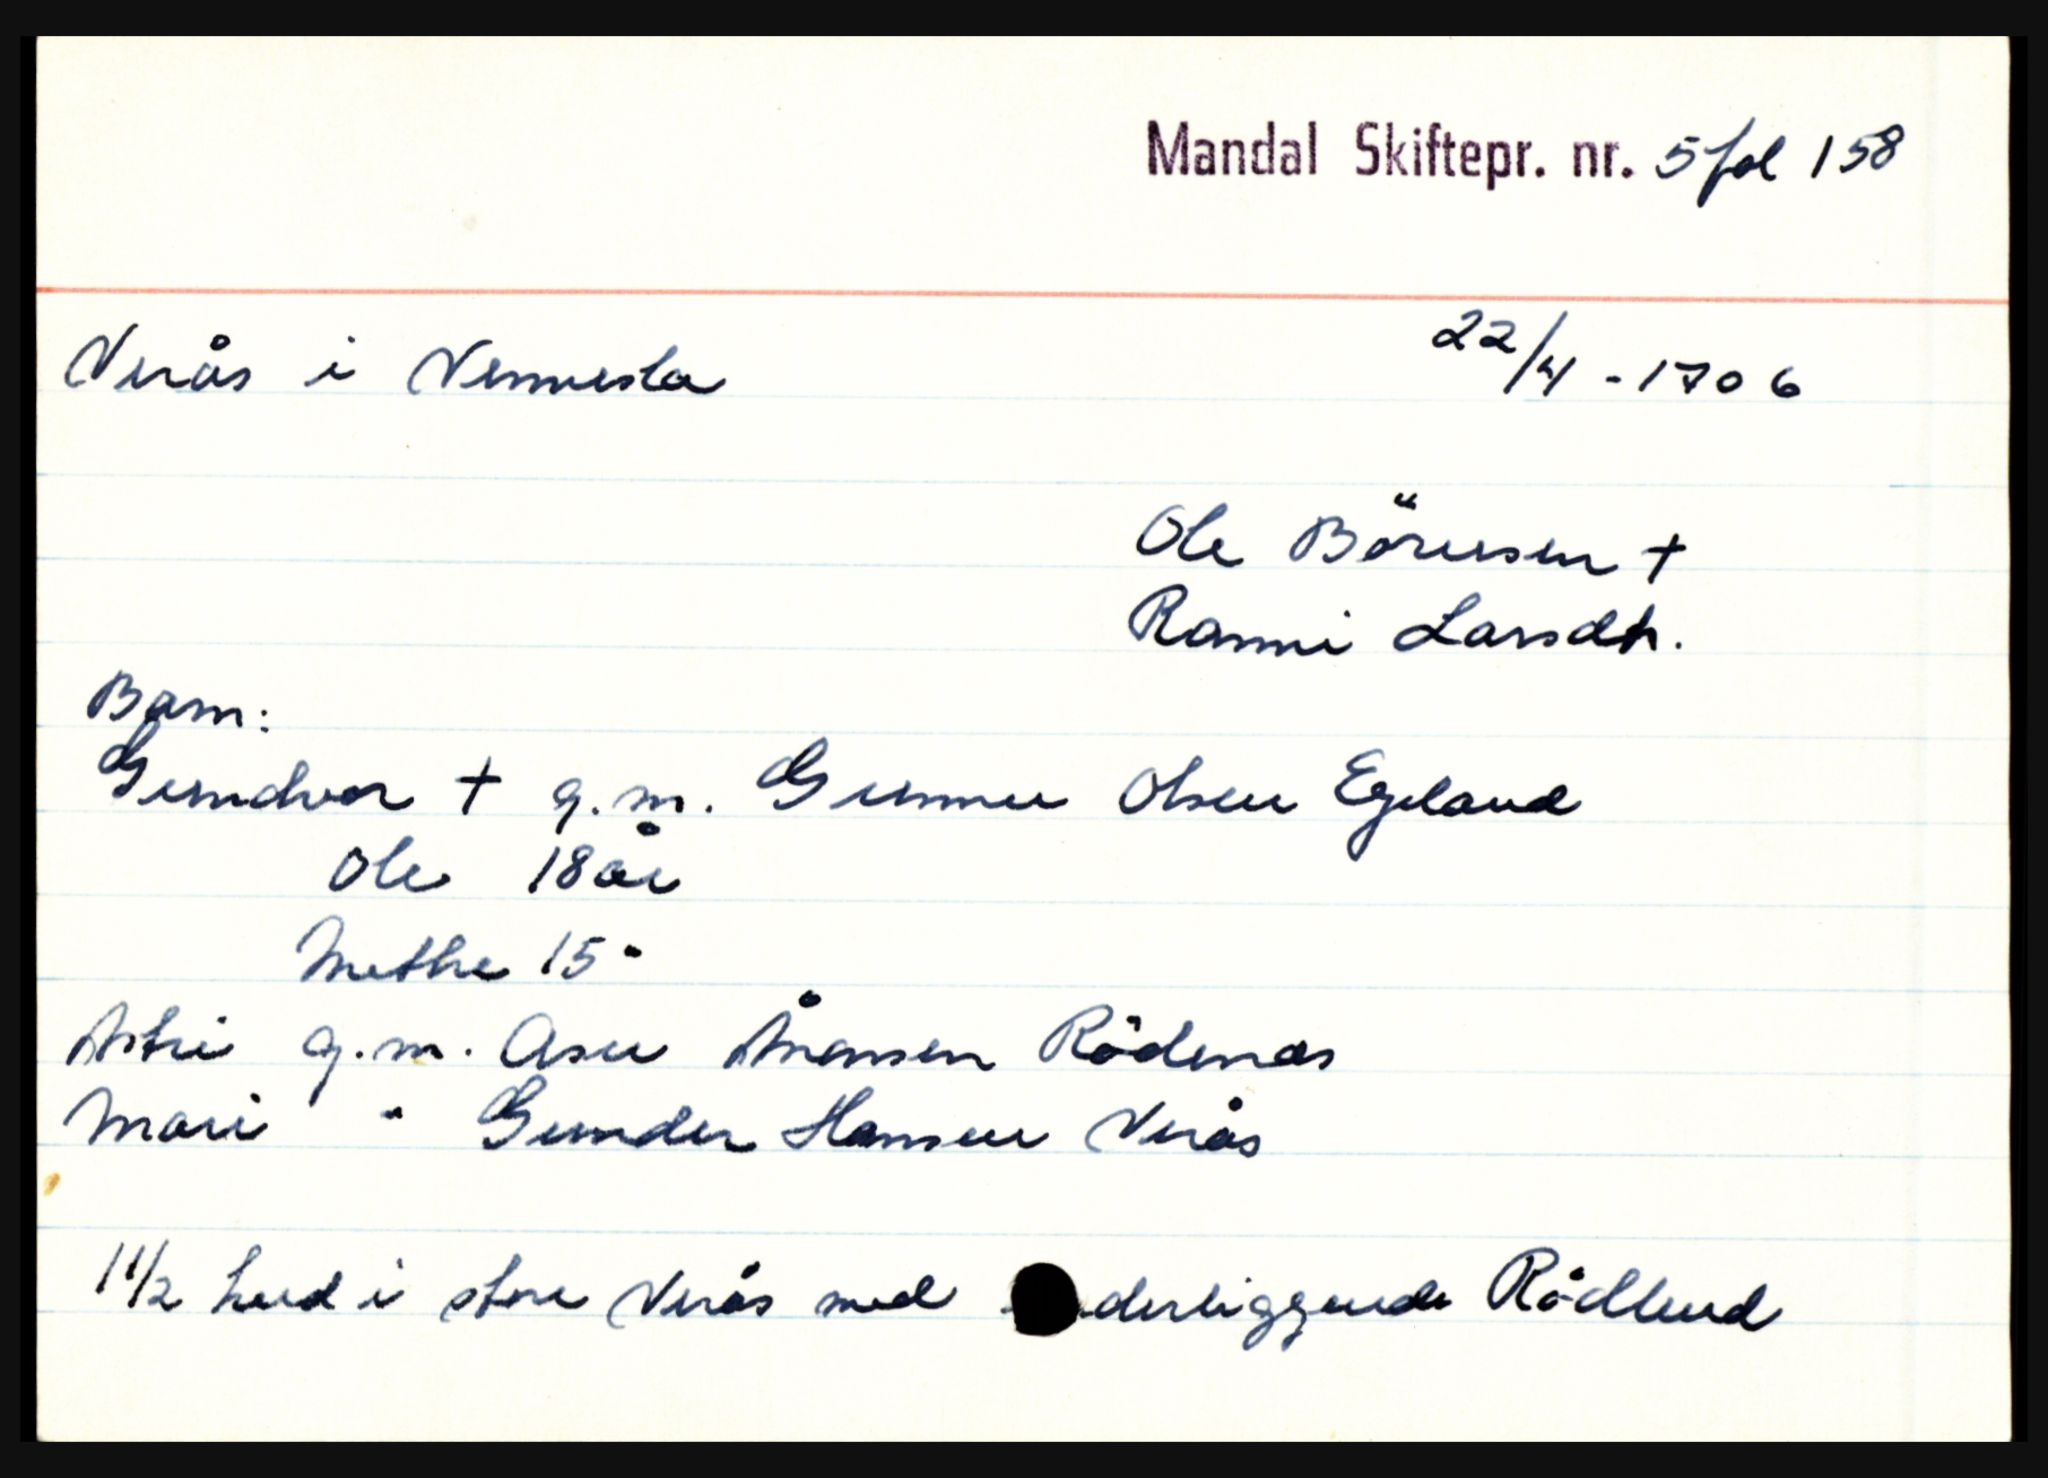 Mandal Skiftepr. nr. 5 fol 158
Verås i Vennesla 22/4 - 1706
Ole Börresen +
Ranni Larsdtr.
Barn:
Gundvor + g.m. Gunner Olsen Egeland
Ole 18 år
Methe 15 "
Astri g.m. Asen Ånensen Rödenes
Mari " Gunder Hansen Verås
1 1/2 hud i store Verås med derliggende Rödlund